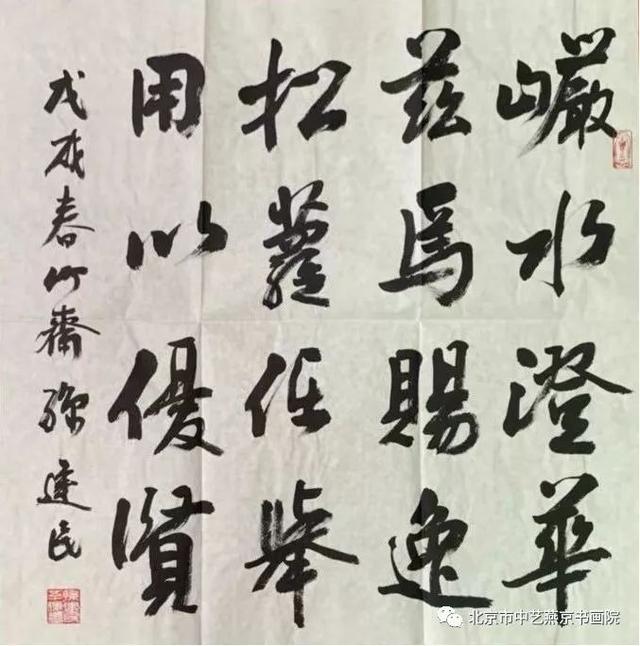 巗水澄華
茲焉賜逸
松蘿低舉
用以優賢
戊戌春竹齋孫達民
北京市中艺燕京书画院